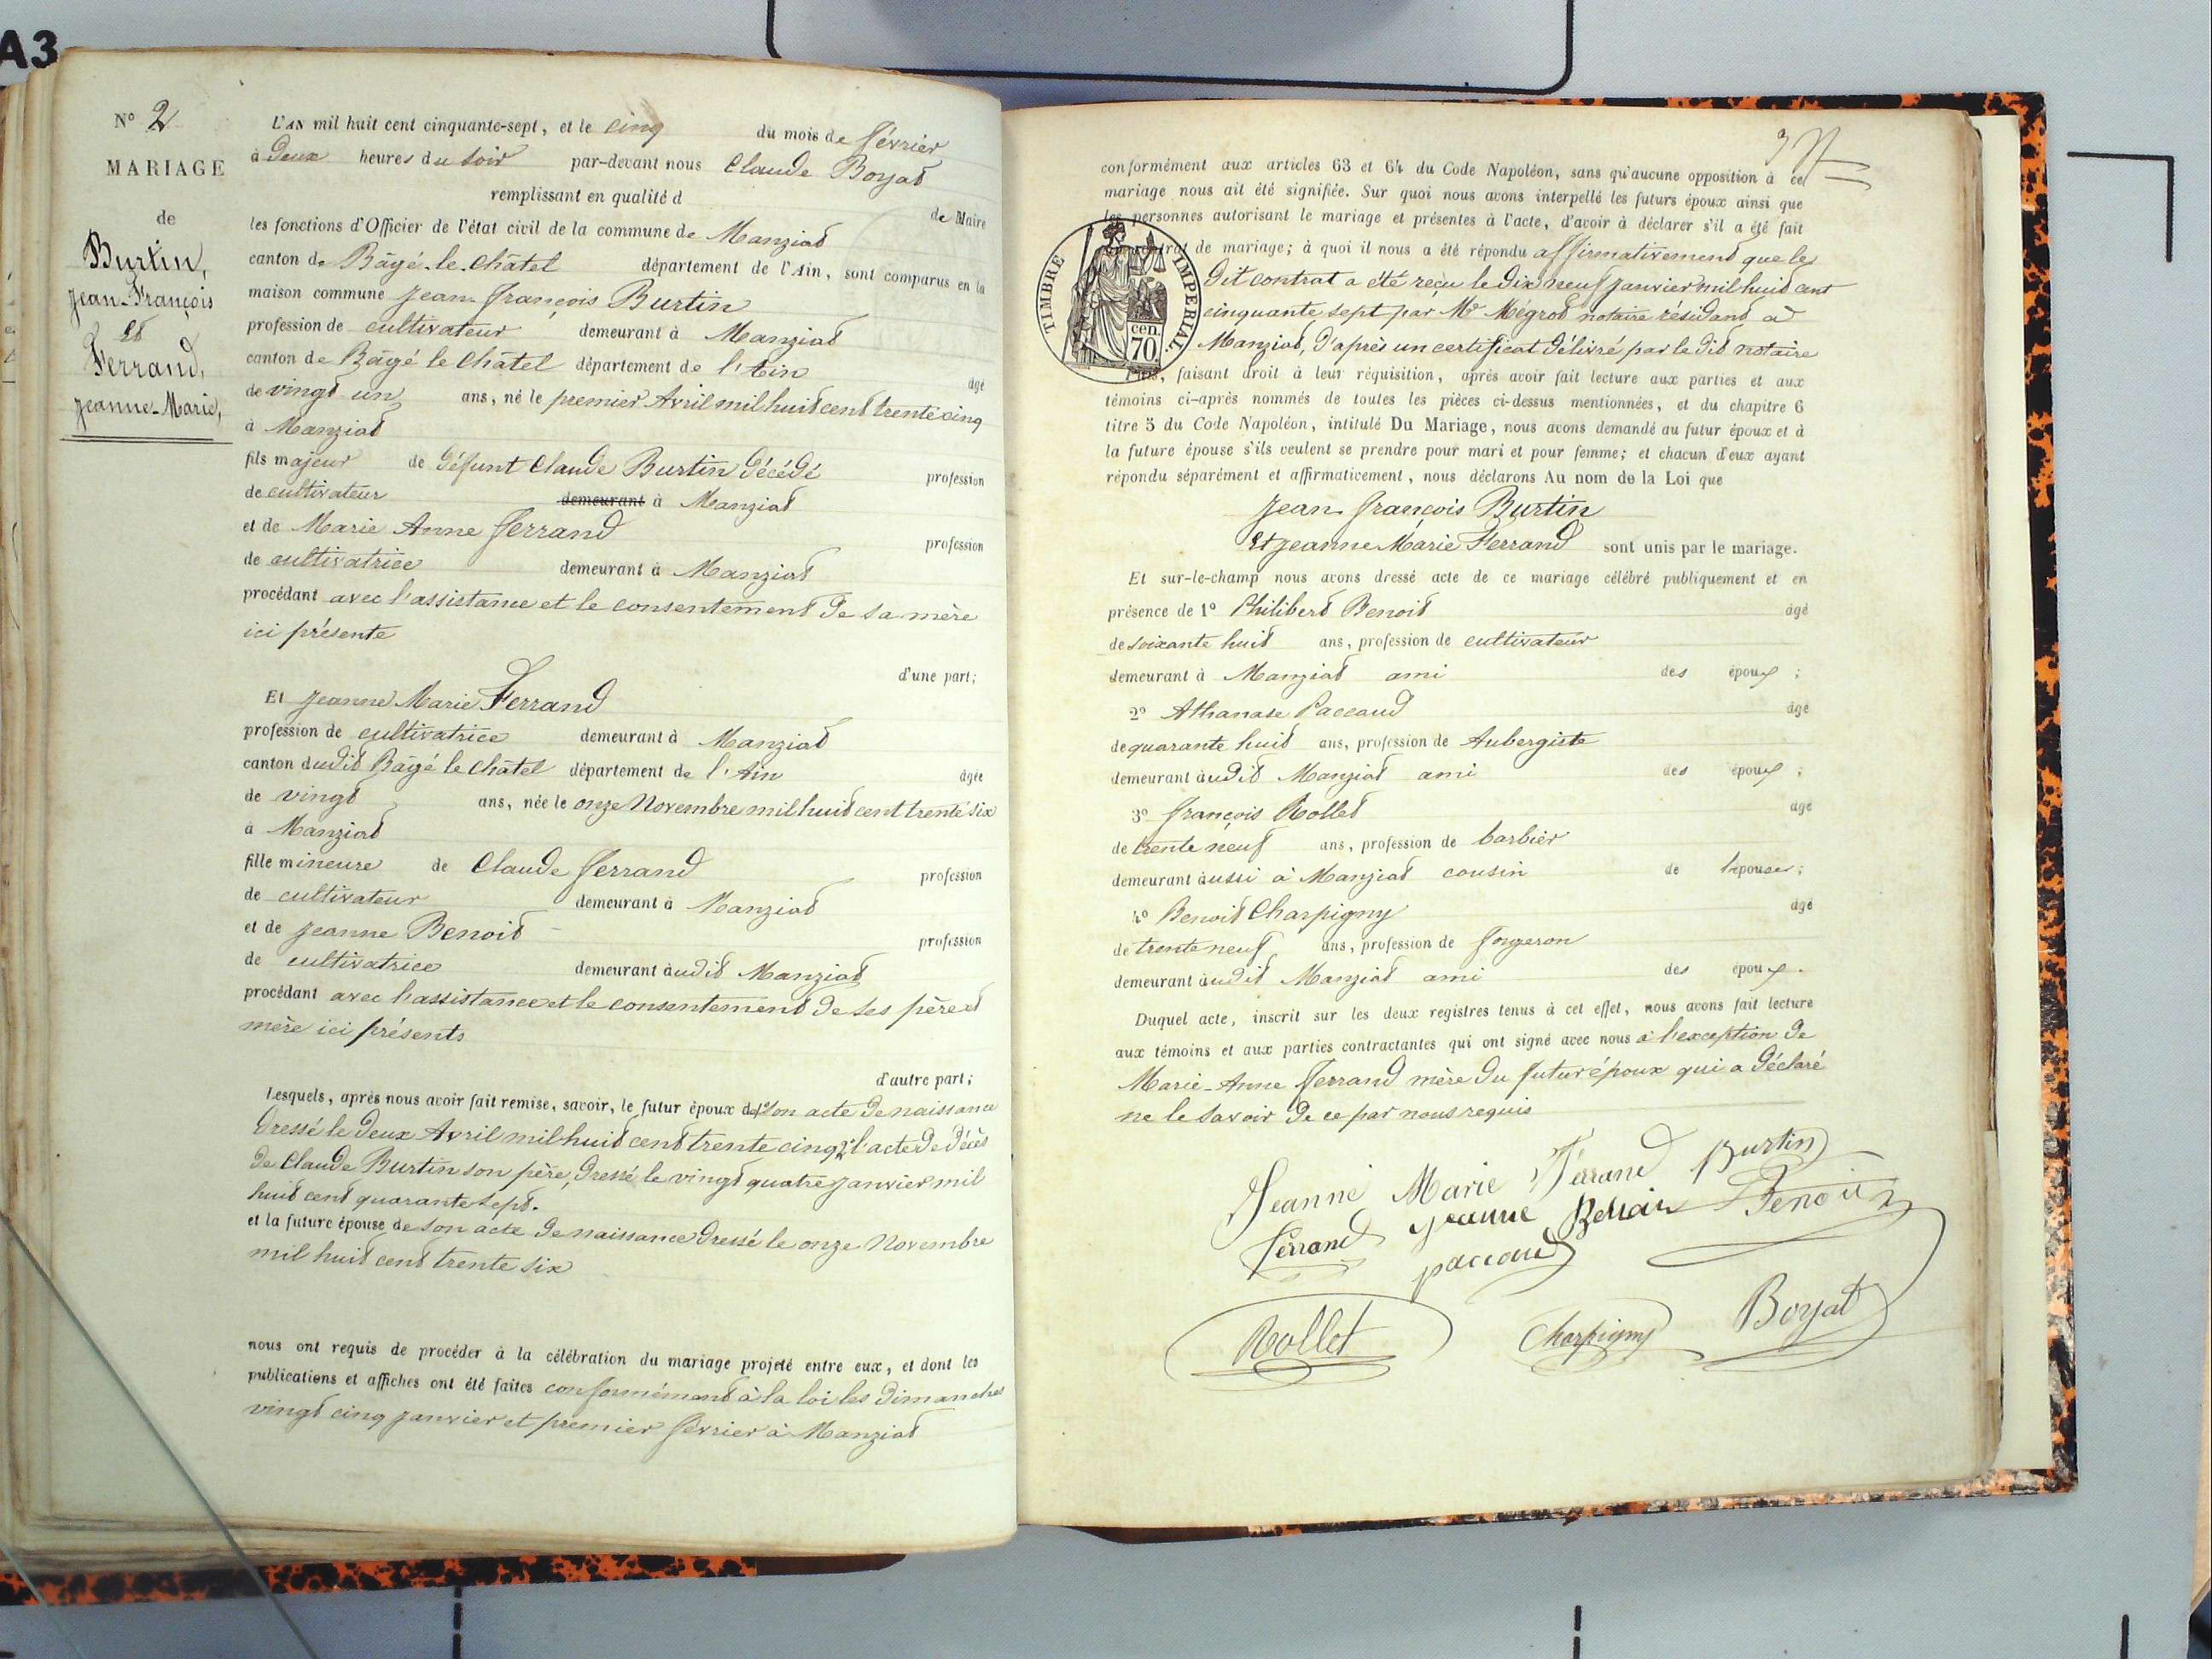 A3
N° 2
MARIAGE
de
Burtin,
Jean-François
Et
Ferrand,
Jeanne-Marie,
L'AN mil huit cent cinquante-sept, et le cinq du mois de février
à deux heures du soir par-devant nous Claude Boyat
remplissant en qualité d de Maire
les fonctions d'Officier de l'état civil de la commune de Manziat
canton de Bâgé-le-Châtel département de l'Ain, sont comparus en la
maison commune Jean-françois Burtin
profession de cultivateur demeurant à Manziat
canton de Bâgé le Châtel département de l'Ain
âgé
de vingt un ans, né le premier Avril mil huit cent trente cinq
à Manziat
fils majeur de défunt Claude Burtin décédé profession
de cultivateur demeurant à Manziat
et de Marie Anne ferrand profession
de cultivatrice demeurant à Manziat
procédant avec l'assistance et le consentement de sa mère
ici présente
d'une part;
Et Jeanne Marie Ferrand
profession de cultivatrice demeurant à Manziat
canton dudit Bâgé le Châtel département de l'Ain âgée
de vingt ans, née le onze Novembre mil huit cent trente six
à Manziat
fille mineure de Claude ferrand profession
de cultivateur demeurant à Manziat
et de Jeanne Benoit profession
de cultivatrice demeurant audit Manziat
procédant avec l'assistance et le consentement de ses père et
mère ici présents
d'autre part;
Lesquels, après nous avoir fait remise, savoir, le futur époux de 1° son acte de naissance
dressé le deux Avril mil huit cent trente cinq 2° l'acte de décès
de Claude Burtin son père, dressé le vingt quatre janvier mil
huit cent quarante sept.
et la future épouse de son acte de naissance dressé le onze Novembre
mil huit cent trente six
nous ont requis de procéder à la célébration du mariage projeté entre eux, et dont les
publications et affiches ont été faites conformément à la loi les dimanches
vingt cinq janvier et premier février à Manziat
conformément aux articles 63 et 64 du Code Napoléon, sans qu'aucune opposition à ce
mariage nous ait été signifiée. Sur quoi nous avons interpellé les futurs époux ainsi que
les personnes autorisant le mariage et présentes à l'acte, d'avoir à déclarer s'il a été fait
de mariage; à quoi il nous a été répondu affirmativement que le
dit contrat a été reçu le dix neuf janvier mil huit cent
cinquante sept par Me Mégrot notaire résidant à
Manziat, d'après un certificat délivré par le dit notaire
TIMBRE IMPERIAL.
cen.
70
faisant droit à leur réquisition, après avoir fait lecture aux parties et aux
témoins ci-après nommés de toutes les pièces ci-dessus mentionnées, et du chapitre 6
titre 5 du Code Napoléon, intitulé Du Mariage, nous avons demandé au futur époux et à
la future épouse s'ils veulent se prendre pour mari et pour femme; et chacun d'eux ayant
répondu séparément et affirmativement, nous déclarons Au nom de la Loi que
Jean-françois Burtin
Et Jeanne Marie Ferrand sont unis par le mariage.
Et sur-le-champ nous avons dressé acte de ce mariage célébré publiquement et en
présence de 1° Philibert Benoit âgé
de soixante huit ans, profession de cultivateur
demeurant à Manziat ami des époux ;
2° Athanase Paccaud âgé
de quarante huit ans, profession de Aubergiste
demeurant audit Manziat ami des époux ;
3° françois Rollet âgé
de trente neuf ans, profession de barbier
demeurant aussi à Manziat cousin de l'épouse ;
4° Benoit Charpigny âgé
de trente neuf ans, profession de forgeron
demeurant audit Manziat ami des époux.
Duquel acte, inscrit sur les deux registres tenus à cet effet, nous avons fait lecture
aux témoins et aux parties contractantes qui ont signé avec nous à l'exception de
Marie-Anne ferrand mère du futur époux qui a déclaré
ne le savoir de ce par nous requis
Jeanne Marie Ferrand Burtin
Ferrand jeanne Benoit Benoit
paccaud
Rollet Charpigny Boyat